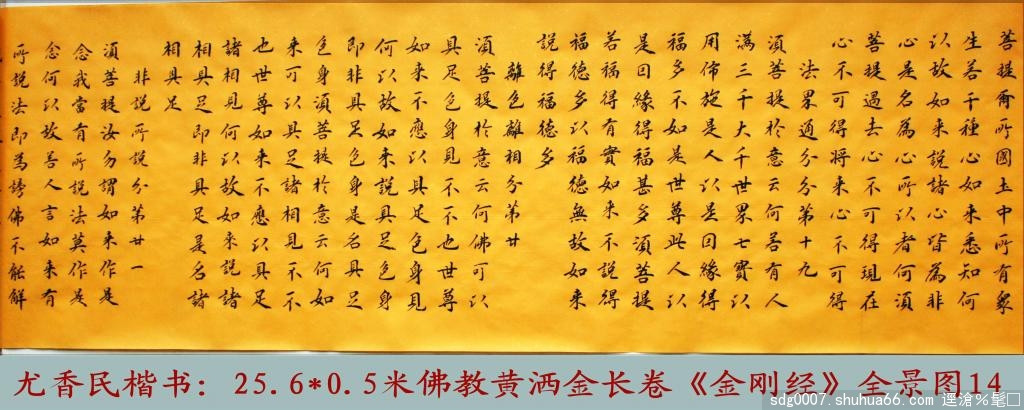 菩提爾所國土中所有眾
生若干種心如來悉知何
以故如來說諸心皆為非
心是名為心所以者何須
菩提過去心不可得現在
心不可得將來心不可得
法界通分分第十九
須菩提於意云何若有人
滿三千大千世界七寶以
用佈施是人以是因緣得
福多不如是世尊此人以
是因緣得福甚多須菩提
若福得有實如來不說得
福德多以福德無故如來
說得福德多
離色離相分第廿
須菩提於意云何佛可以
具足色身見不不也世尊
如來不應以具足色身見
何以故如來說具足色身
即非具足色身是名具足
色身須菩提於意云何如
來可以具足諸相見不不
也世尊如來不應以具足
諸相見何以故如來說諸
相具足即非具足是名諸
相具足
非說所說分第廿一
須菩提汝勿謂如來作是
念我當有所說法莫作是
念何以故若人言如來有
所說法即為謗佛不能解
尤香民楷书：25.6*0.5米佛教黄洒金长卷《金刚经》全景图14
sdg0007.shuhua66.com